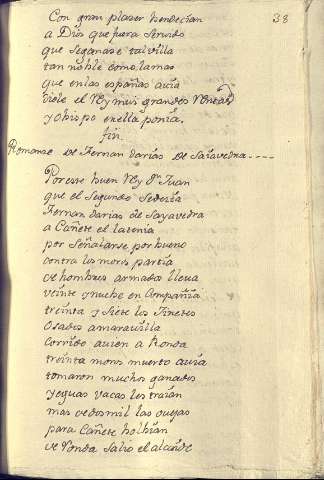 38
Con gran plaser bendecian
a Dios que fuera serundo
que seganase tal villa
tan noble como lamas
que enlas españas avia
diole el Rey muy grandes Rentas
y obispo enella ponia.
fin.
Romanse de Fernan darias de Saiavedra
Poresse buen Rey Dn Juan
que el Segundo Sedesia
Fernan darias de Sayavedra
a Cañete el latenia
por Señalarse por bueno
contra los moros partia
de hombres armados lleva
veinte y nuebe en Compañia
treinta y siete los Jinetes
Osados amaravilla
Corrido avien a Ronda
treinta moros muerto avia
tomaron muchos ganados
yeguas vacas les traian
mas de dos mil las ovejas
para Cañete bolbian
de Ronda Salio el alcaide